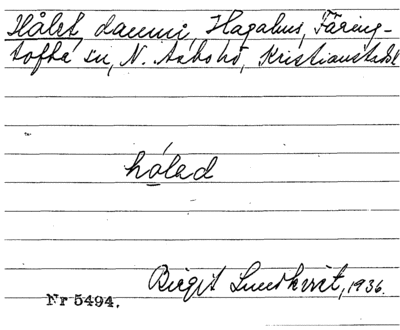 Hålet, dammi, Hagahus, Färing-
tofta sn, N. Åsbo hd, Kristianstads l
hålad
Birgit Lundkvist, 1936.
Nr 5494.